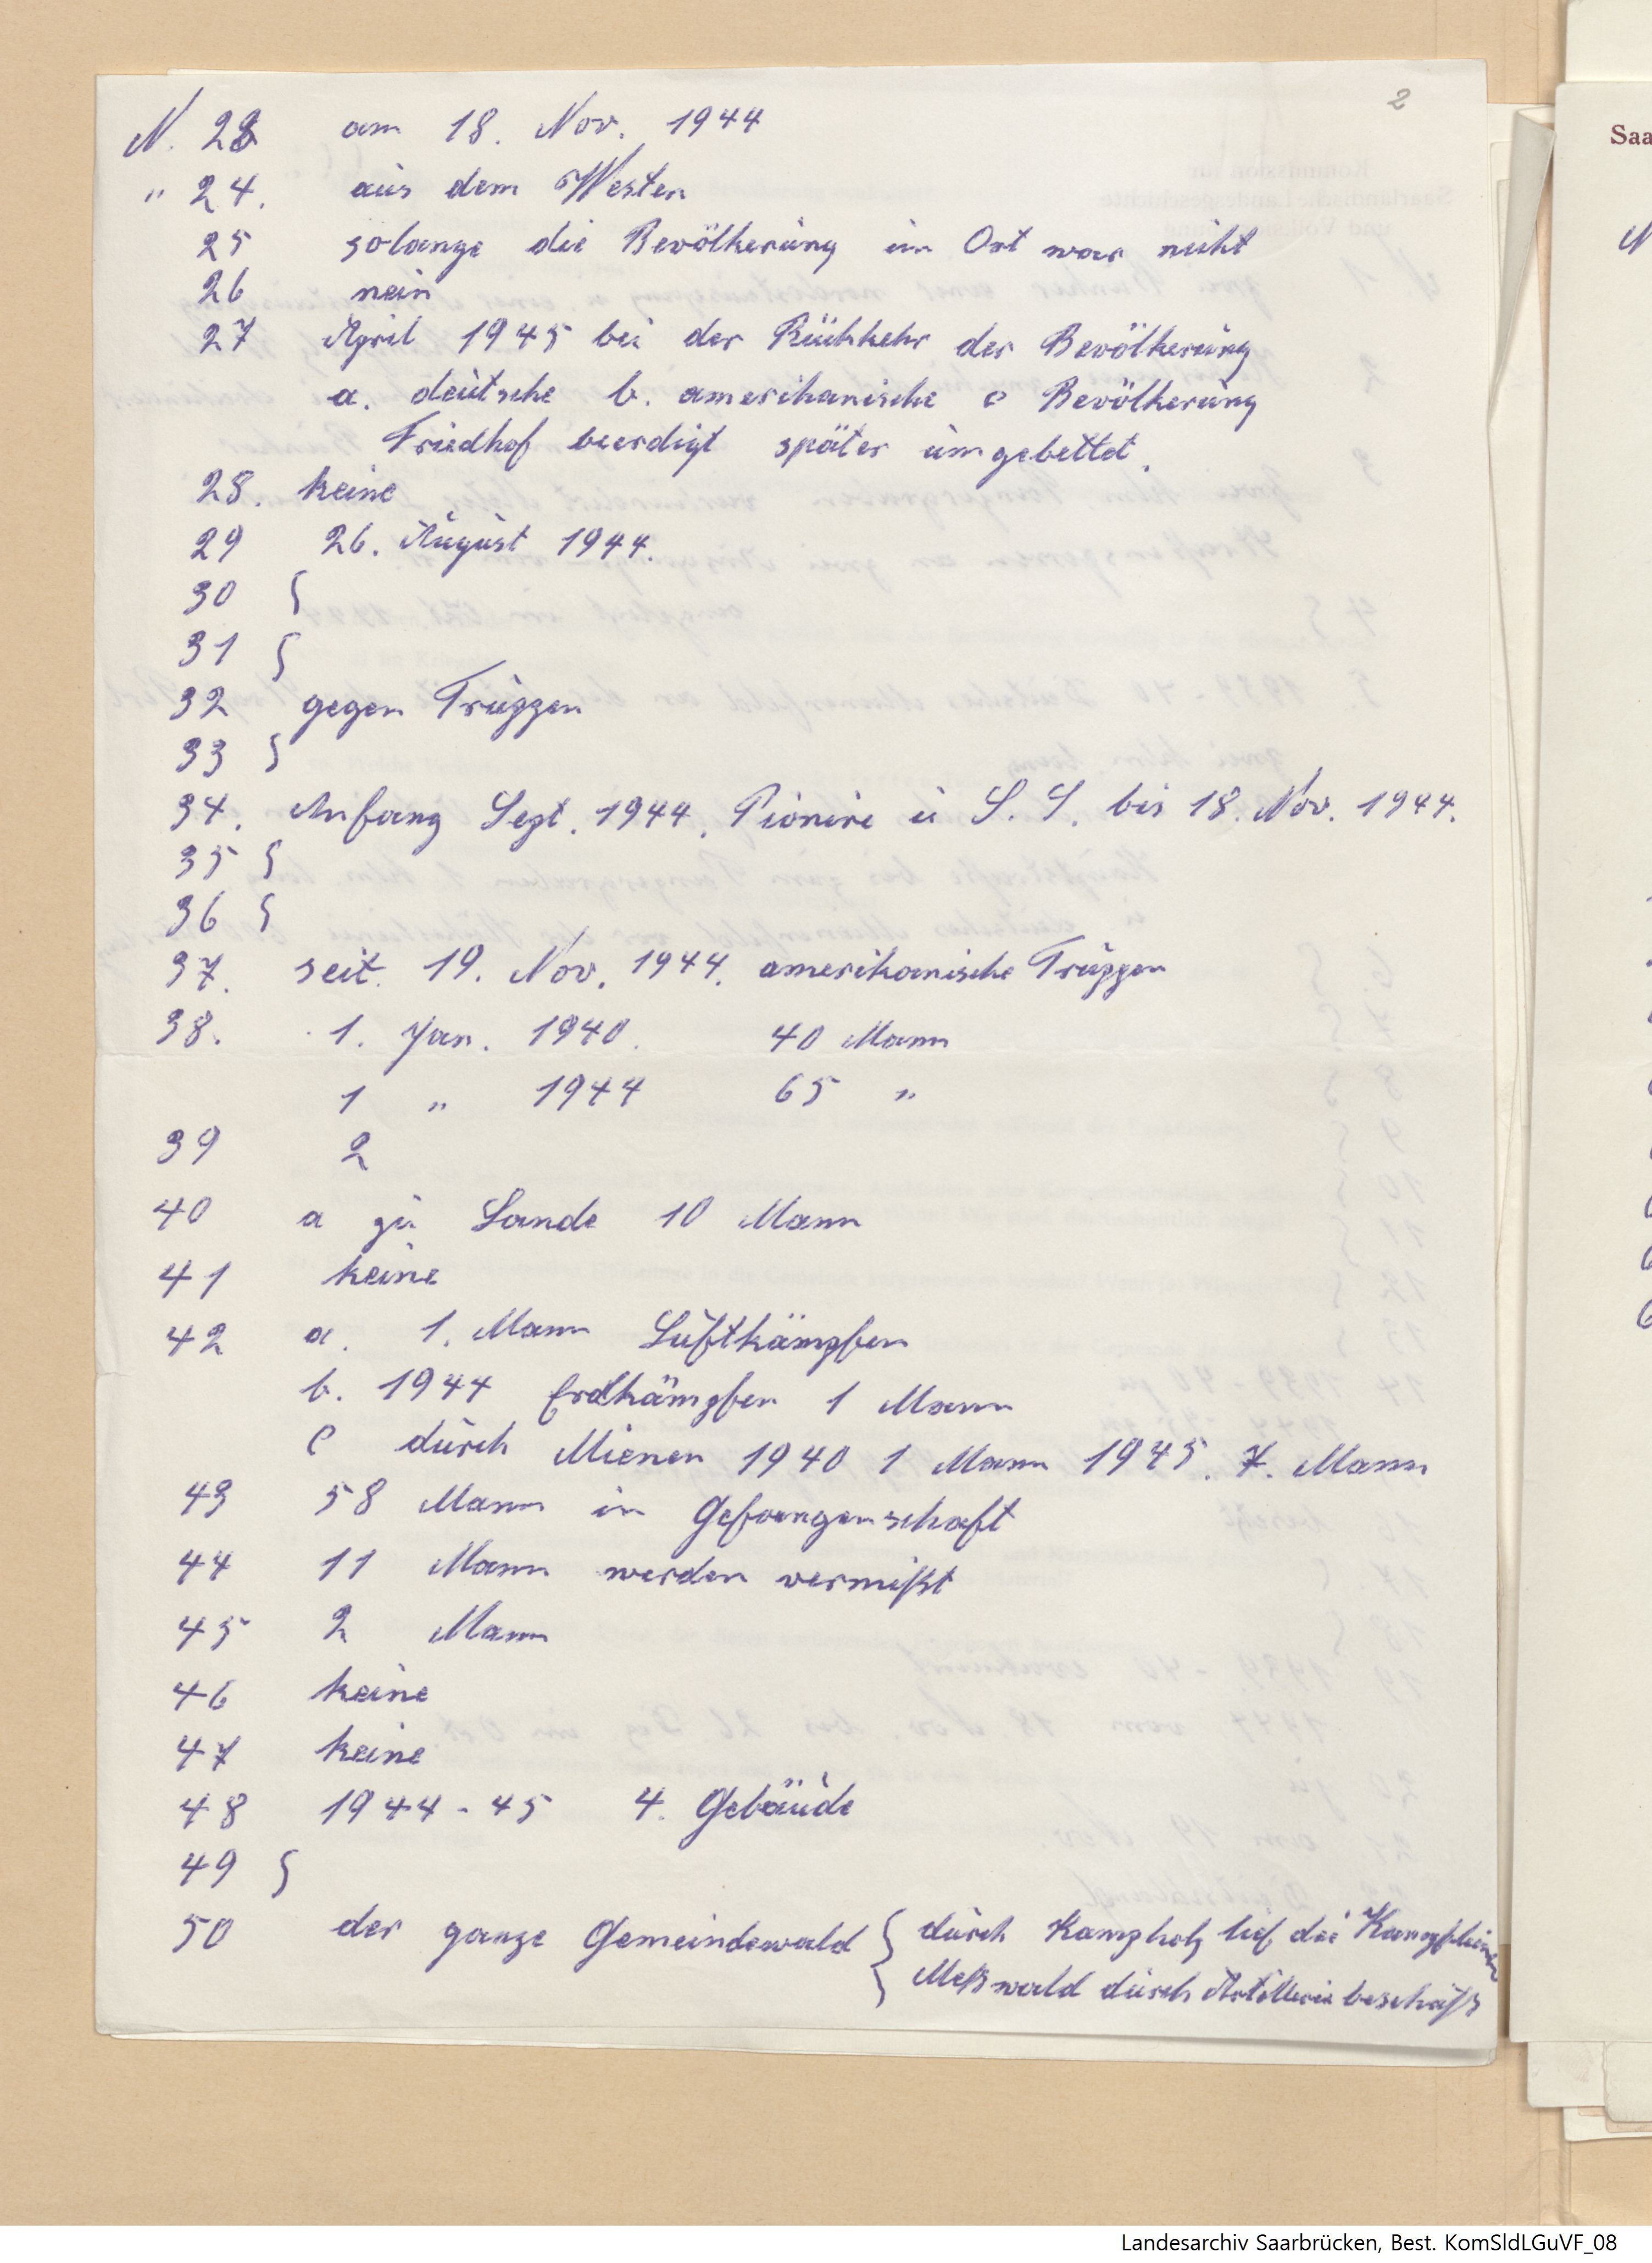 2
N. 23 am 18. Nov. 1944
" 24. aus dem Westen
25 solange die Bevölkerung im Ort war nicht
26 nein
27 April 1945 bei der Rückkehr der Bevölkerung
a. deutsche b. amerikanische c Bevölkerung
Friedhof beerdigt später umgebettet.
28. keine
29 26. August 1944.
30 {
31 {
32 gegen Truppen
33 {
34. Anfang Sept. 1944. Pionire u S. S. bis 18. Nov. 1944.
35 {
36 {
37. seit. 19. Nov. 1944. amerikanische Truppen
38. 1. Jan. 1940. 40 Mann
1 " 1944 65 "
39 2
40 a zu Lande 10 Mann
41 keine
42 a. 1. Mann Luftkämpfen
b. 1944 Erdkämpfen 1 Mann
c durch Mienen 1940 1 Mann 1945. 7. Mann
43 58 Mann in Gefangenschaft
44 11 Mann werden vermißt
45 2 Mann
46 keine
47 keine
48 1944-45 4. Gebäude
49 {
50 der ganze Gemeindewald { durch Kampholz lief die
Meßwald durch Artillerie
Saa
N
Landesarchiv Saarbrücken, Best. KomSldLGuVF_08